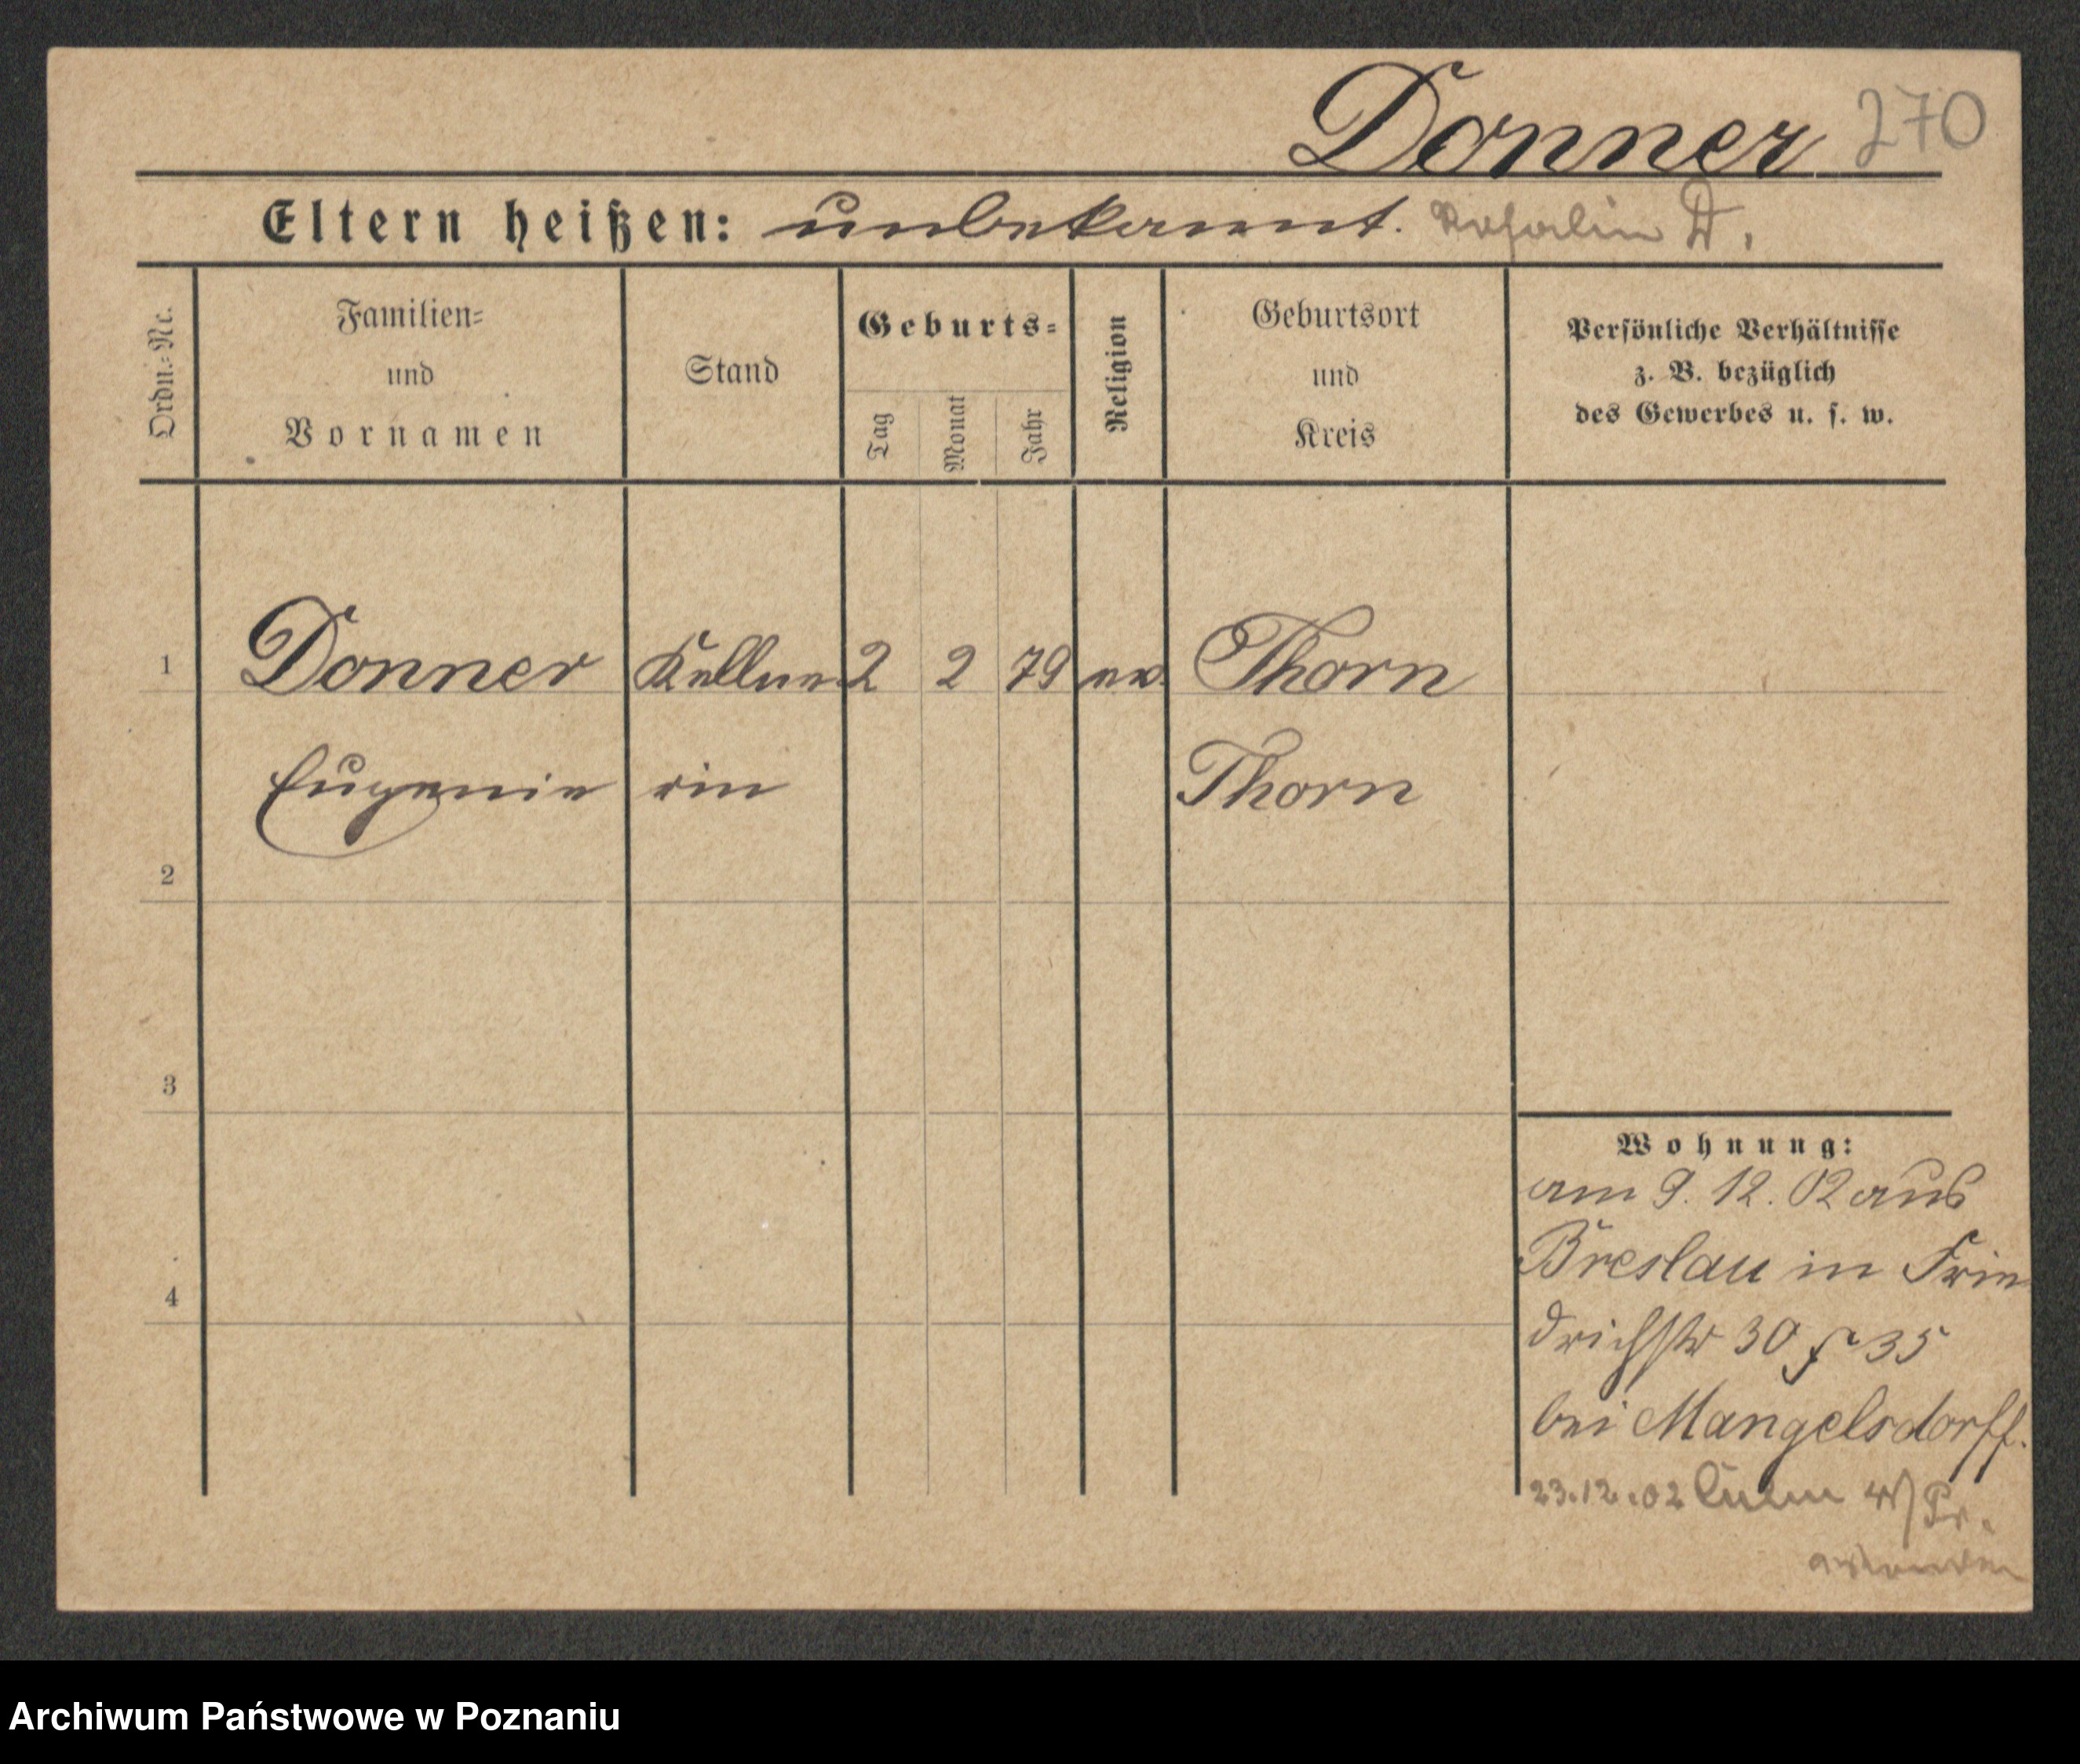 Donner 270
Eltern heißen: unbekannt. Rosalie D.
Ordn.-Nr.
Familien-
und
Vornamen
Stand
Geburts-
Tag
Monat
Jahr
Religion
Geburtsort
und
Kreis
Persönliche Verhältnisse
z. B. bezüglich
des Gewerbes u. s. w.
1 Donner Kellne 2 2 79 ev. Thorn
Eugenie rin Thorn
2
3
4
Wohnung:
am 9. 12. 02 aus
Breslau in Frie
drichstr 30 35
bei Mangelsdorff.
23.12.02 Culm W/Pr.
Archiwum Państwowe w Poznaniu